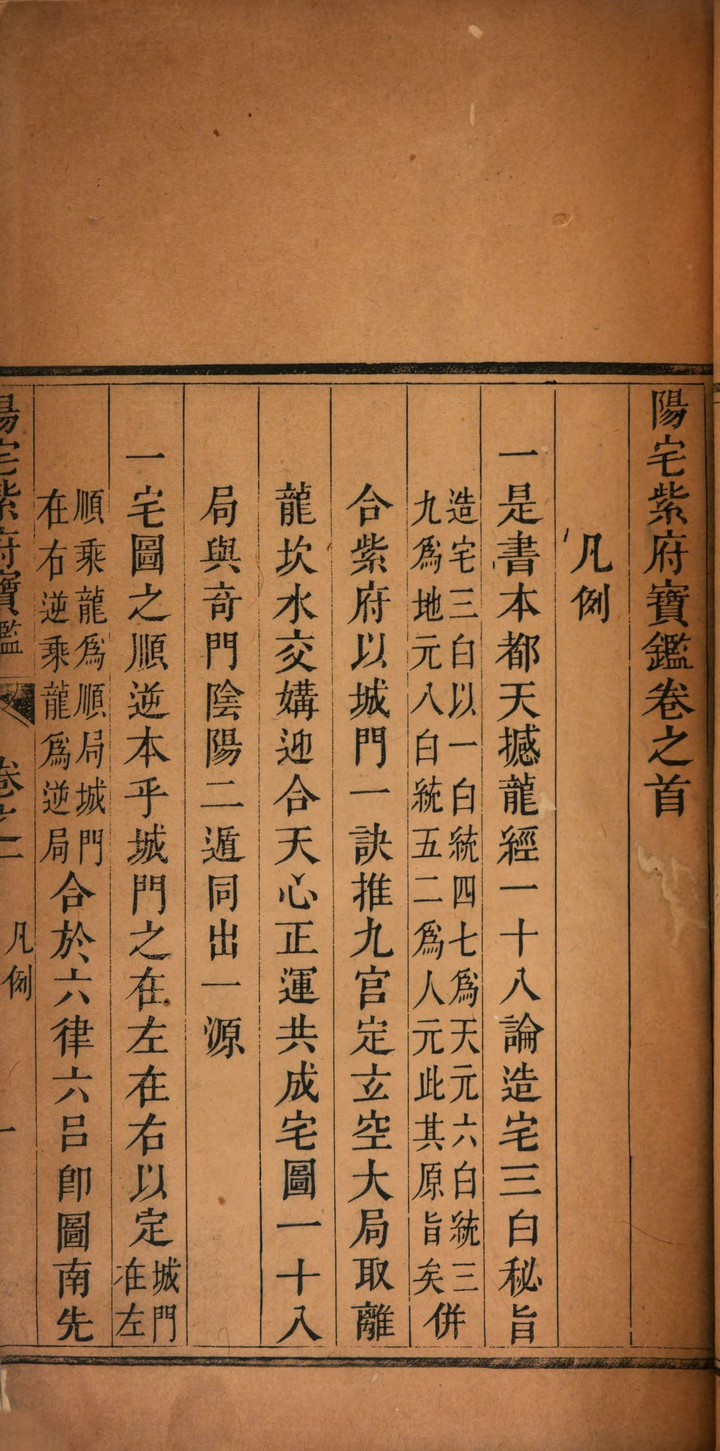 陽宅紫府寶鑑卷之首
凡例
一是書本都天撼龍經一十八論造宅三白秘旨
造宅三白以一白統四七爲天元六白統三
九爲地元八白統五二爲人元此其原旨矣
併
合紫府以城門一訣推九宫定玄空大局取離
龍坎水交媾迎合天心正運共成宅圖一十八
局與奇門陰陽二遁同出一源
一宅圖之順逆本乎城門之在左在右以定
城門
在左
順乘龍爲順局城門
在右逆乘龍爲逆局
合於六律六呂卽圖南先
陽宅紫府寶鑑
卷之一
凡例
一